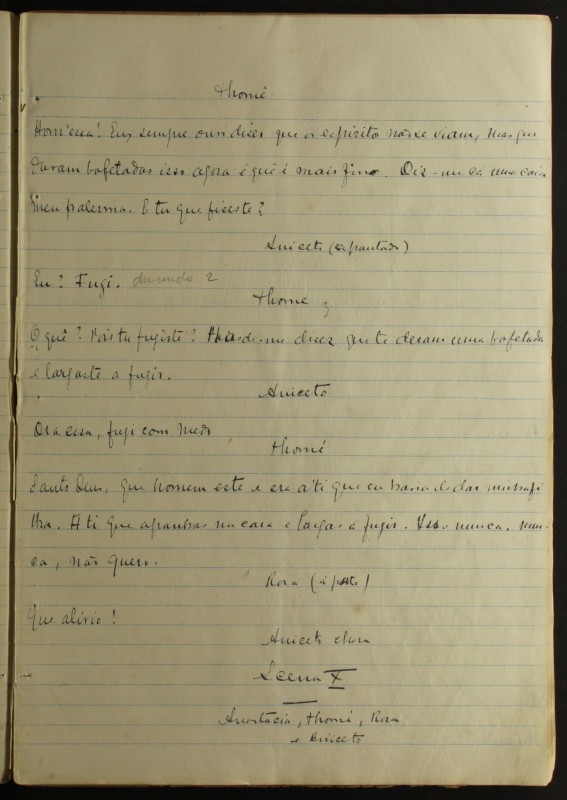 Thomé
Hom'essa! Eu, sempre ouvi dizer que os espirito não se viam, mas que
davam bofetadas isso agora é que é mais fino. Diz-me cá uma coisa
meu palerma. E tu que fizeste?
Aniceto (espantado)
Eu? Fugi. durando 2
Thome 3
O quê? Pois tu fugiste? dizer que te deram uma bofetada
e largaste a fugir.
Aniceto
Ora essa, fugi com medo
Thomé
Santo Deus, que homem este e era a ti que eu havia de dar minha fi
lha. A ti que apanhas na cara e largas a fugir. Isso nunca, nun-
ca, não quero.
Rosa (á parte)
Que alivio!
Aniceto chora
Scena X
Anastacia, Thomé, Rosa
e Aniceto